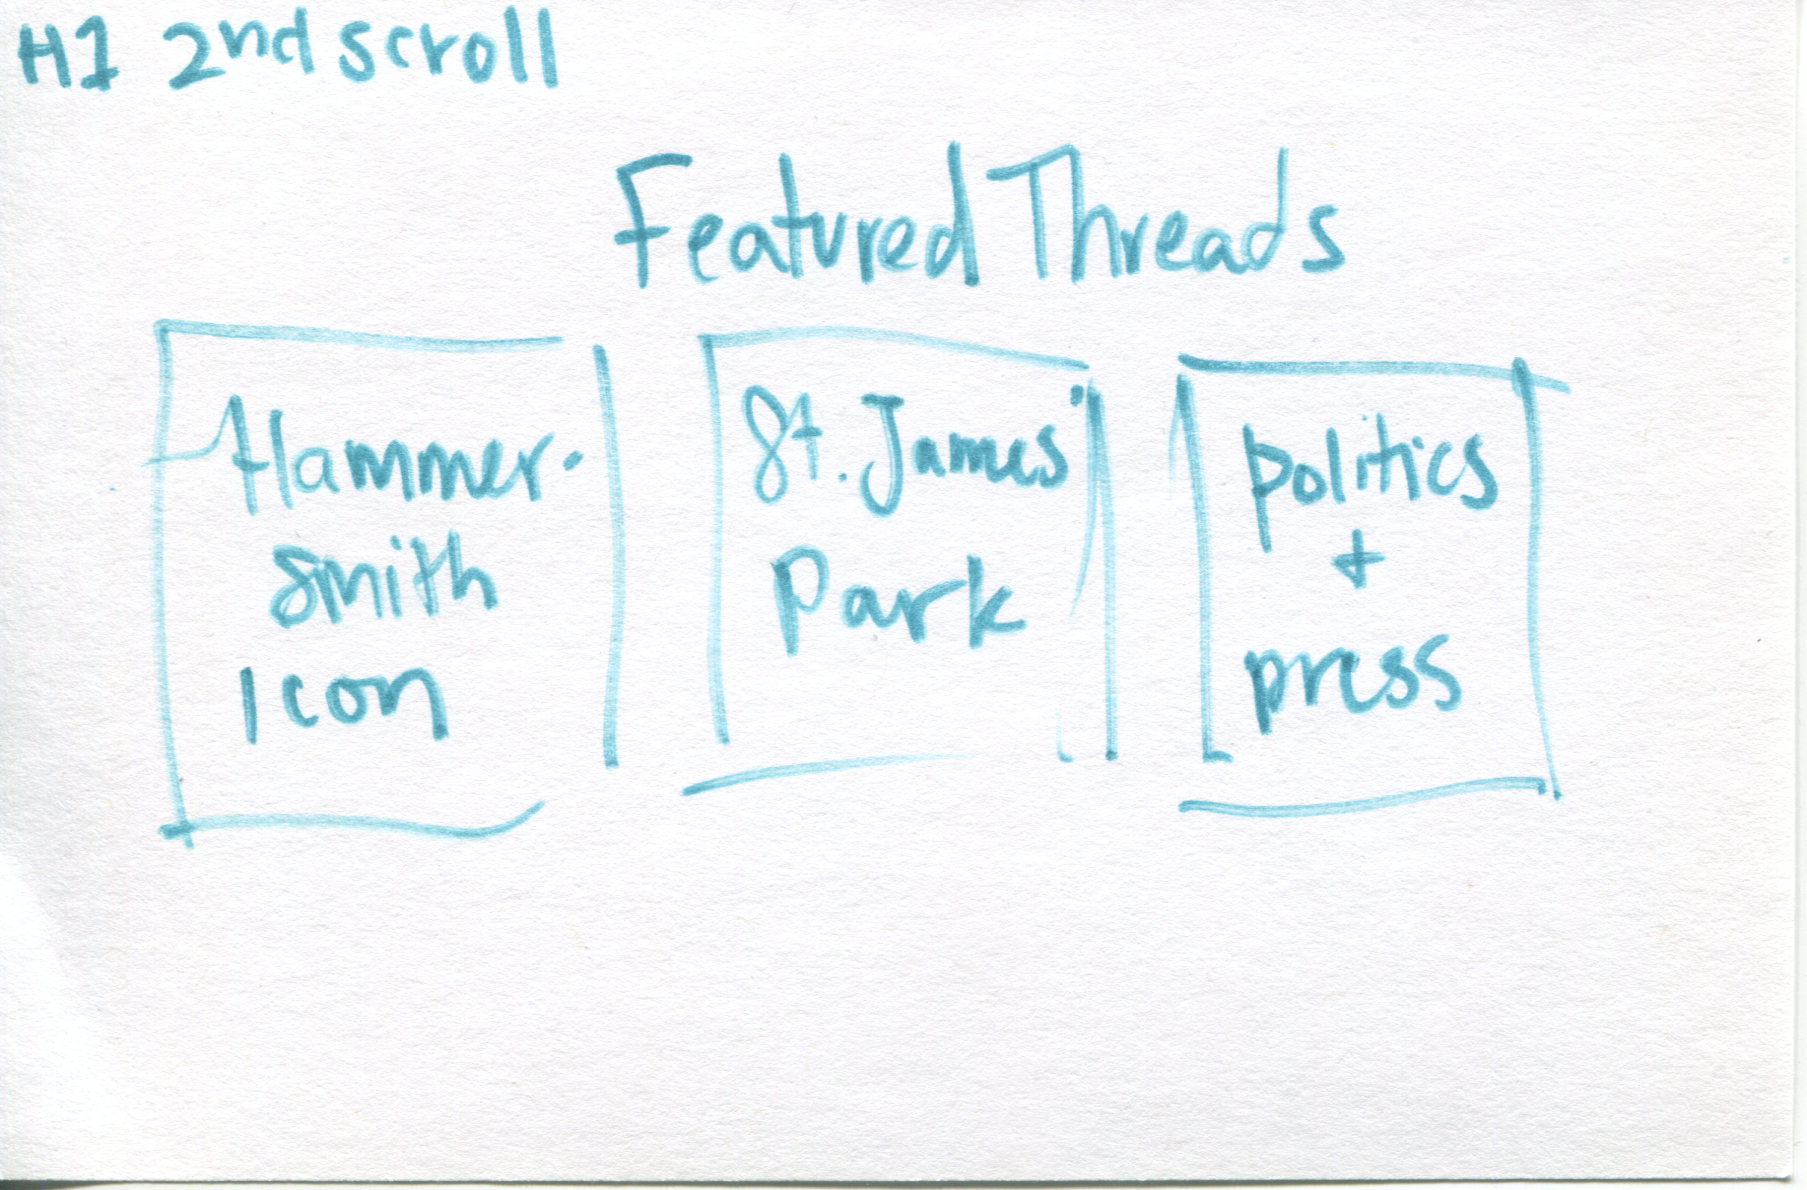 H1 2nd scroll
Featured Threads
Hammer-
smith
Icon
St. James'
Park
politics
+
press